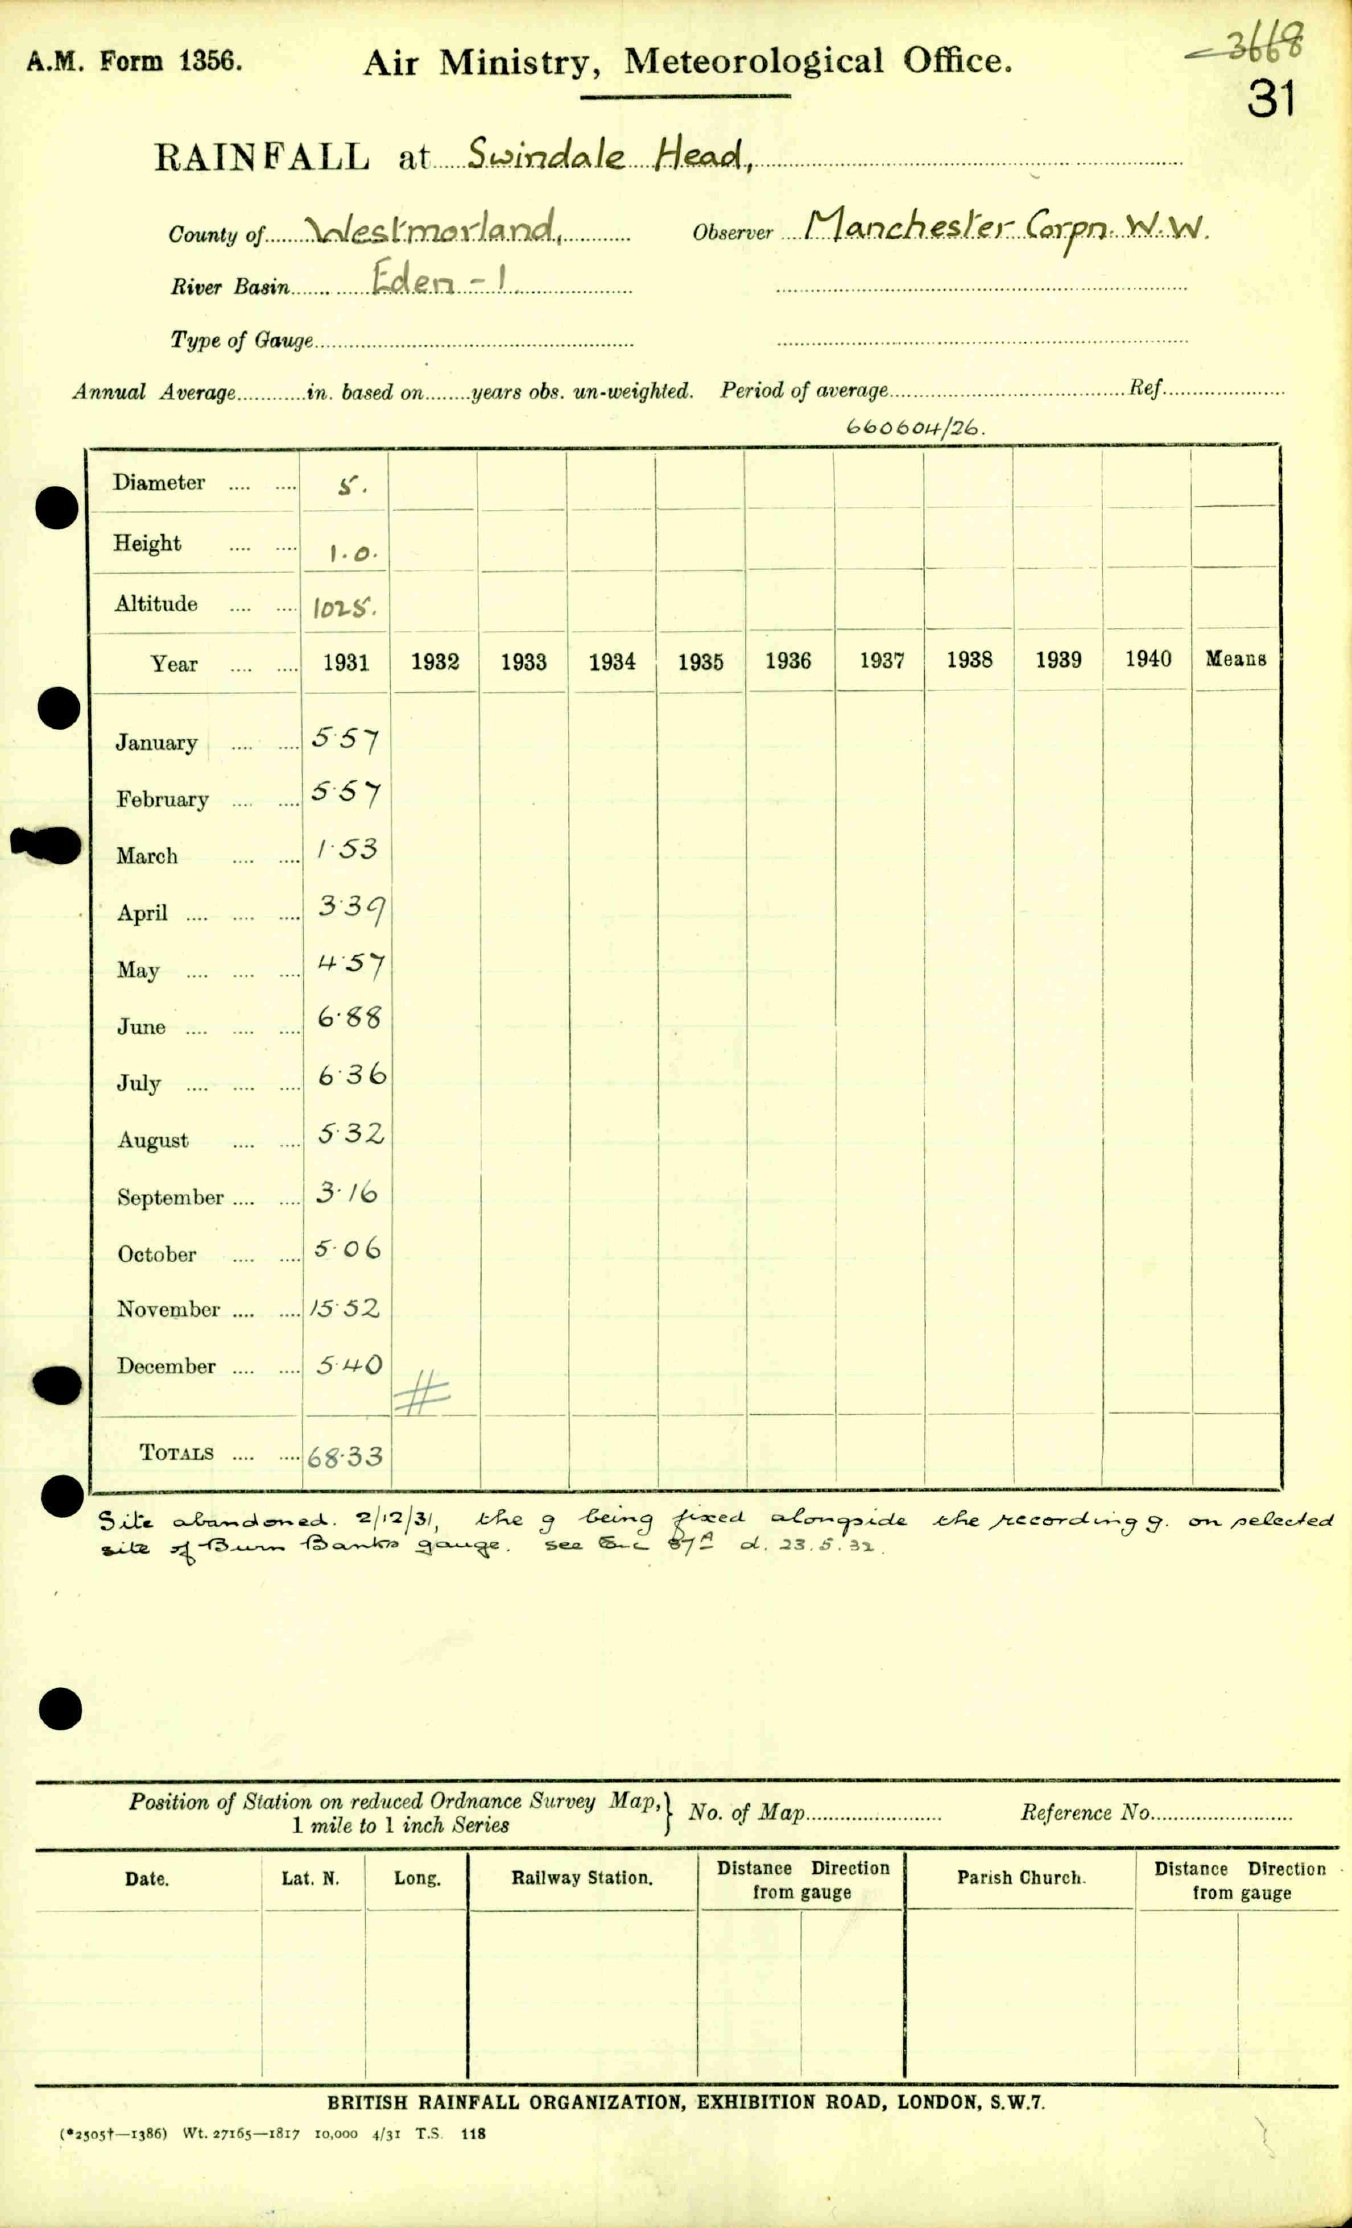 3668
A.M. Form 1356. Air Ministry, Meteorological Office.
31
RAINFALL at Swindale Head,
County of Westmorland, Observer Manchester Corpn. W.W.
River Basin Eden - 1.
Type of Gauge
Annual Average in. based on years obs. un-weighted. Period of average Ref.
660604/26.
Diameter 5.
Height 1.0.
Altitude 1025.
Year 1931 1932 1933 1934 1935 1936 1937 1938 1939 1940 Means
January 5.57
February 5.57
March 1.53
April 3.39
May 4.57
June 6.88
July 6.36
August 5.32
September 3.16
October 5.06
November 15.52
December 5.40
#
TOTALS 68.33
Site abandoned. 2/12/31, the g being fixed alongside the recording g. on selected
site of Burn Banks gauge. see d. 23.5.32.
Position of Station on reduced Ordnance Survey Map, } No. of Map Reference No.
1 mile to 1 inch Series
Date. Lat. N. Long. Railway Station. Distance Direction from gauge Parish Church. Distance Direction from gauge
BRITISH RAINFALL ORGANIZATION, EXHIBITION ROAD, LONDON, S.W.7.
(*2505†—1386) Wt. 27165—1817 10,000 4/31 T.S. 118